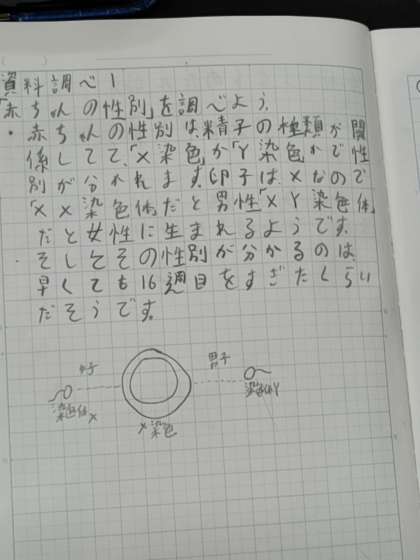 資料調べ1
「赤ちゃんの性別」を調べよう。
・赤ちゃんの性別は、精子の種類が関
係してて、「X染色か「Y染色かで性
別が分かれます。卵子はXなので
「XX染色体だと男性「XY染色体
だと女性に生まれるようです。
・そしてその性別が分かるのは、
早くても16週目をすぎたくらい
だそうです。
男子
染色体X
X染色
染色体Y